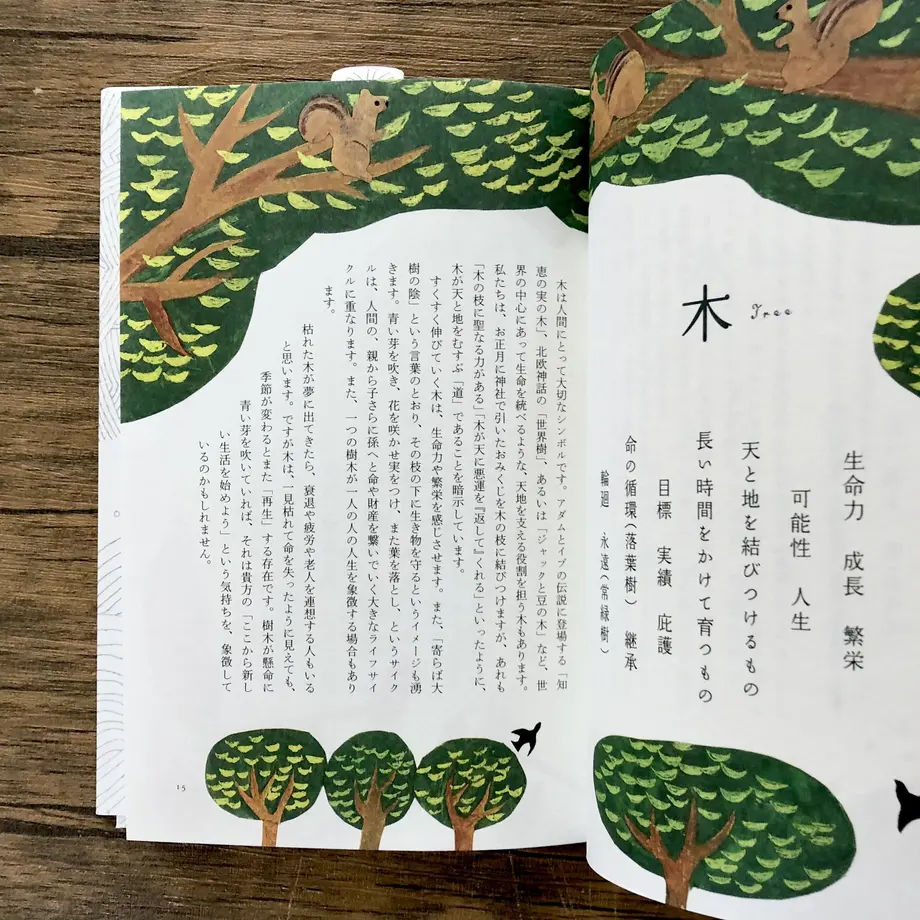 木 Tree
生命力 成長 繁栄
可能性 人生
天と地を結びつけるもの
長い時間をかけて育つもの
目標 実績 庇護
命の循環(落葉樹) 継承
輪廻 永遠(常緑樹)
木は人間にとって大切なシンボルです。アダムとイブの伝説に登場する「知
恵の実の木」、北欧神話の「世界樹」、あるいは「ジャックと豆の木」など、世
界の中心にあって生命を統べるような、天地を支える役割を担う木もあります。
私たちは、お正月に神社で引いたおみくじを木の枝に結びつけますが、あれも
「木の枝に聖なる力がある」「木が天に悪運を『返して』くれる」といったように、
木が天と地をむすぶ「道」であることを暗示しています。
すくすく伸びていく木は、生命力や繁栄を感じさせます。また、「寄らば大
樹の陰」という言葉のとおり、その枝の下に生き物を守るというイメージも湧
きます。青い芽を吹き、花を咲かせ実をつけ、また葉を落とし、というサイク
ルは、人間の、親から子さらに孫へと命や財産を繋いでいく大きなライフサイ
クルに重なります。また、一つの樹木が一人の人の人生を象徴する場合もあり
ます。
枯れた木が夢に出てきたら、衰退や疲労や老人を連想する人もいる
と思います。ですが木は、一見枯れて命を失ったように見えても、
季節が変わるとまた「再生」する存在です。樹木が懸命に
青い芽を吹いていれば、それは貴方の「ここから新し
い生活を始めよう」という気持ちを、象徴して
いるのかもしれません。
15